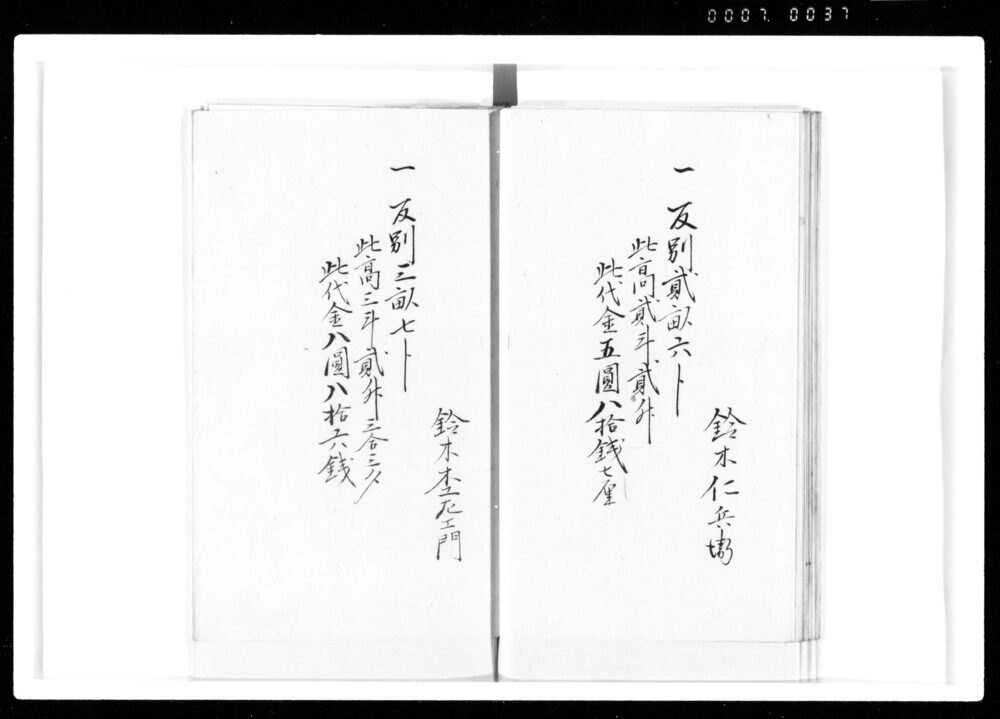 0007. 0037
鈴木仁兵衛
一 反別貳畝六卜
此高貳斗貳升
此代金五圓八拾錢七厘
鈴木杢左エ門
一 反別三畝七卜
此高三斗貳升三合三夕
此代金八圓八拾六錢